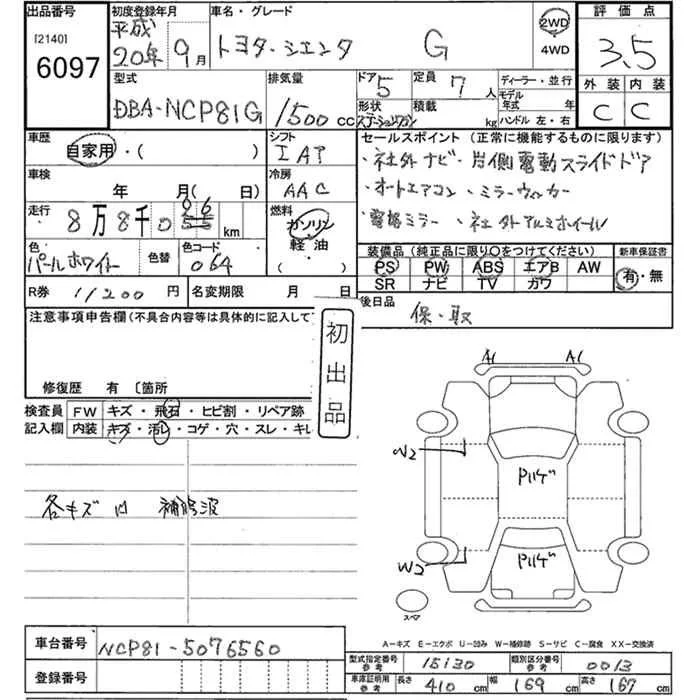 出品番号
[2140]
6097
初度登録年月
平成
20年 9月
車名・グレード
トヨタ・シエンタ G
2WD
4WD
評価点
3.5
外装 内装
C C
型式
DBA-NCP81G
排気量
1500 cc
ドア
5
形状
ステーションワゴン
定員 7 人
積載 kg
ディーラー・並行
モデル
年式 年
ハンドル 左・右
車歴
自家用・( )
シフト
IAT
車検
年 月( 日)
冷房
AAC
走行
8万8千0 km
燃料
ガソリン
軽油
・( )
色
パールホワイト
色替
色コード
064
R券 11200 円
名変期限 月 日
セールスポイント (正常に機能するものに限ります)
・社外ナビ・片側電動スライドドア
・オートエアコン・ミラーウィンカー
・電格ミラー・社外アルミホイール
装備品 (純正品に限り〇をつけてください)
新車保証書
PS PW ABS エアB AW
SR ナビ TV カワ
有・無
後日品
保・取
注意事項申告欄 (不具合内容等は具体的に記入して
初出品
修復歴 有 〔箇所
検査員
記入欄
FW キズ・飛石・ヒビ割・リペア跡
内装 キズ・汚レ・コゲ・穴・スレ・キレ
各キズ 凹 補修波
A1 A1
W2
Pハゲ
W2
Pハゲ
スペア
A-キズ E-エクボ U-凹み W-補修跡 S-サビ C-腐食 XX-交換済
車台番号 NCP81-5076560
登録番号
型式指定番号
参考
15130
類別区分番号
参考
0013
車庫証明用
参考
長さ 410 cm 幅 169 cm 高さ 167 cm